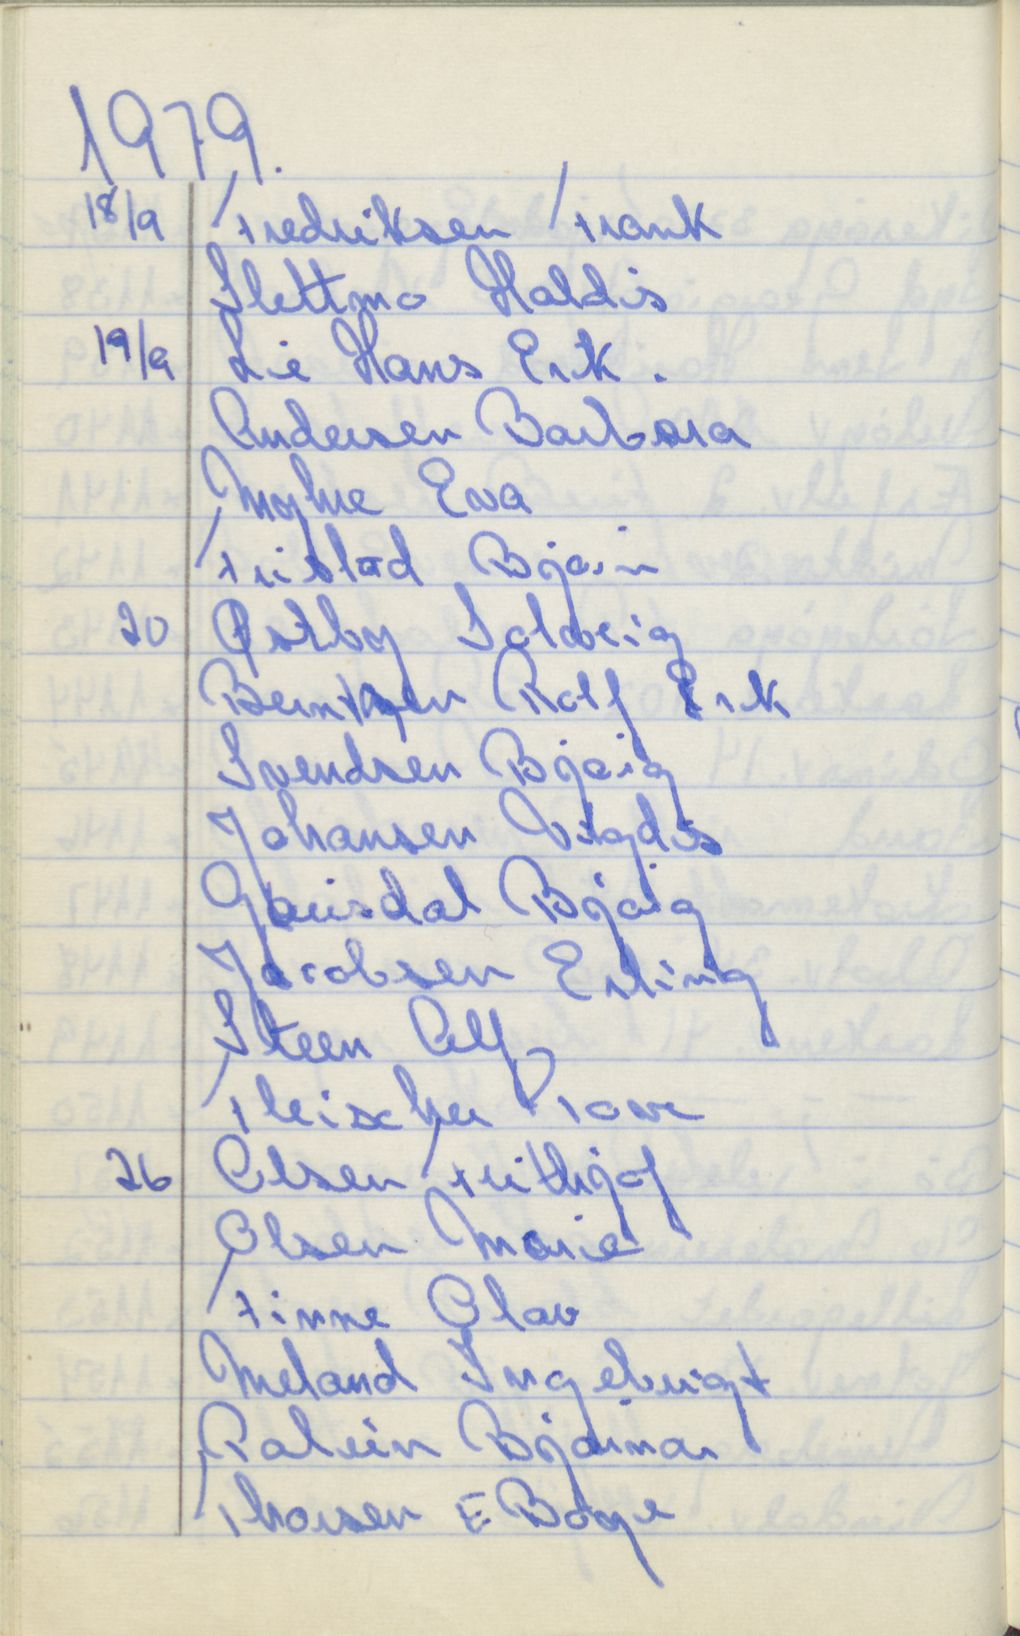 1979.
18/9 Fredriksen Frank
Slettmo Haldis
19/9 Lie Hans Erik.
Andersen Barbara
Myhre Eva
Fristad Bjørn
20 Østby Solveig
Berntsen Rolf Erik
Svendsen Bjørg
Johansen Vigdis
Gausdal Bjørg
Jacobsen Erling
Steen Alf
Fleischer Tove
26 Olsen Frithjof
Olsen Marie
Finne Olav
Meland Ingebrigt
Bjørnar
Thorsen E Børge